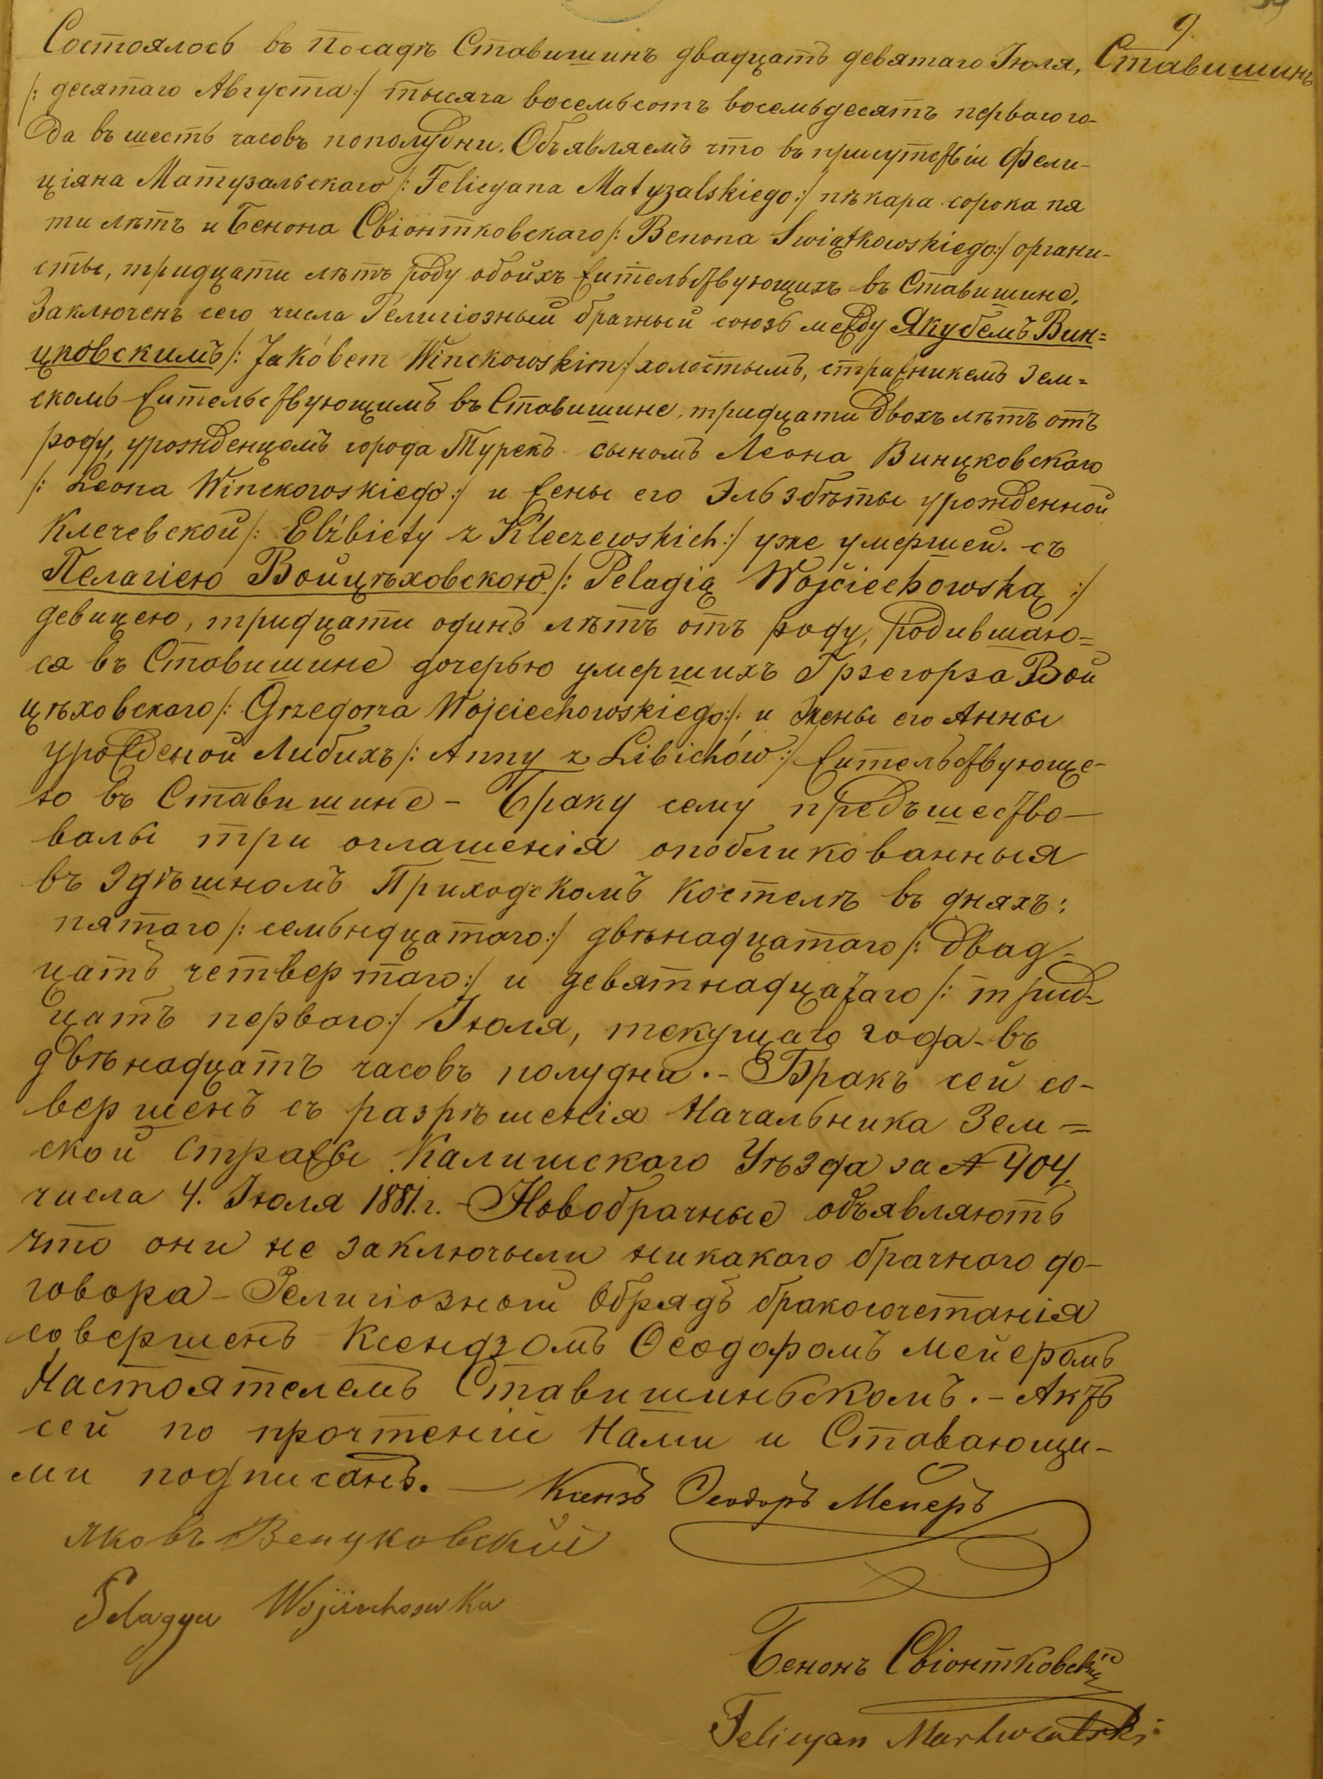 9.
Ставишинъ
Состоялось въ посадѣ Ставишинъ двадцать девятаго Іюля,
/: десятаго Августа :/ тысяча восемьсотъ восемьдесятъ перваго го-
да въ шесть часовъ пополудни. Объявляемъ что въ присутствіи Фели-
ціяна Матузальскаго /: Felicyana Matyzalskiego :/ пѣкара сорока пя
ти лѣтъ и Бенона Свіонтковскаго /: Benona Swiątkowskiego :/ органи-
сты, тридцати лѣтъ роду обоихъ жительствующихъ въ Ставишине,
Заключенъ сего числа Религіозный брачный союзъ между Якубемъ Вин=
цковскимъ /: Jakóbem Winckowskim :/ холостымъ, стражникемъ Зем=
скомъ жительствующимъ въ Ставишине, тридцати двохъ лѣтъ отъ
роду, урожденцомъ города Турекъ сыномъ Леона Винцковскаго
/: Leona Winckowskiego :/ и жены его Эльзбѣты урожденной
Клечевской /: Elżbiety z Kleczewskich :/ уже умершей. съ
Пелагіею Войцѣховскою /: Pelagią Wojciechowską :/
девицею, тридцати одинъ лѣтъ отъ роду, родившаю=
ся въ Ставишине дочерью умершихъ Грзегорза Вой
цѣховскаго /: Grzegorza Wojciechowskiego :/ и жены его Анны
урожденой Либихъ /: Anny z Libichów :/ жительствующе-
ю въ Ставишине – Браку сему предъшество–
валы три оглашенія опобликованныя
въ здѣшномъ Приходскомъ Костелѣ въ дняхъ:
пятаго /: семьндцатаго :/ двѣнадцатаго /: двад-
цать четвертаго :/ и девятнадцатаго /: трид-
цать перваго :/ Іюля, текущаго года – въ
двѣнадцать часовъ полудни. – Бракъ сей со-
вершенъ съ разрѣшенія Начальника Зем=
ской Стражи Калишскаго Уѣзда за № 404.
числа 4. Іюля 1881 г. – Новобрачные объявляютъ
что они не заключыли никакого брачного до-
говора – Религіозный обрядъ бракосочетанія
совершенъ Ксендзомъ Ѳеодоромъ Мейеромъ
Настоятелемъ Ставишиньскомъ. – Актъ
сей по прочтеніи Нами и Ставающи-
ми подписанъ. – Ксензъ Ѳеодоръ Мейеръ
Яковъ Венцковскій
Pelagya Wojciechowska
Бенонъ Свіонтковскій
Felicyan